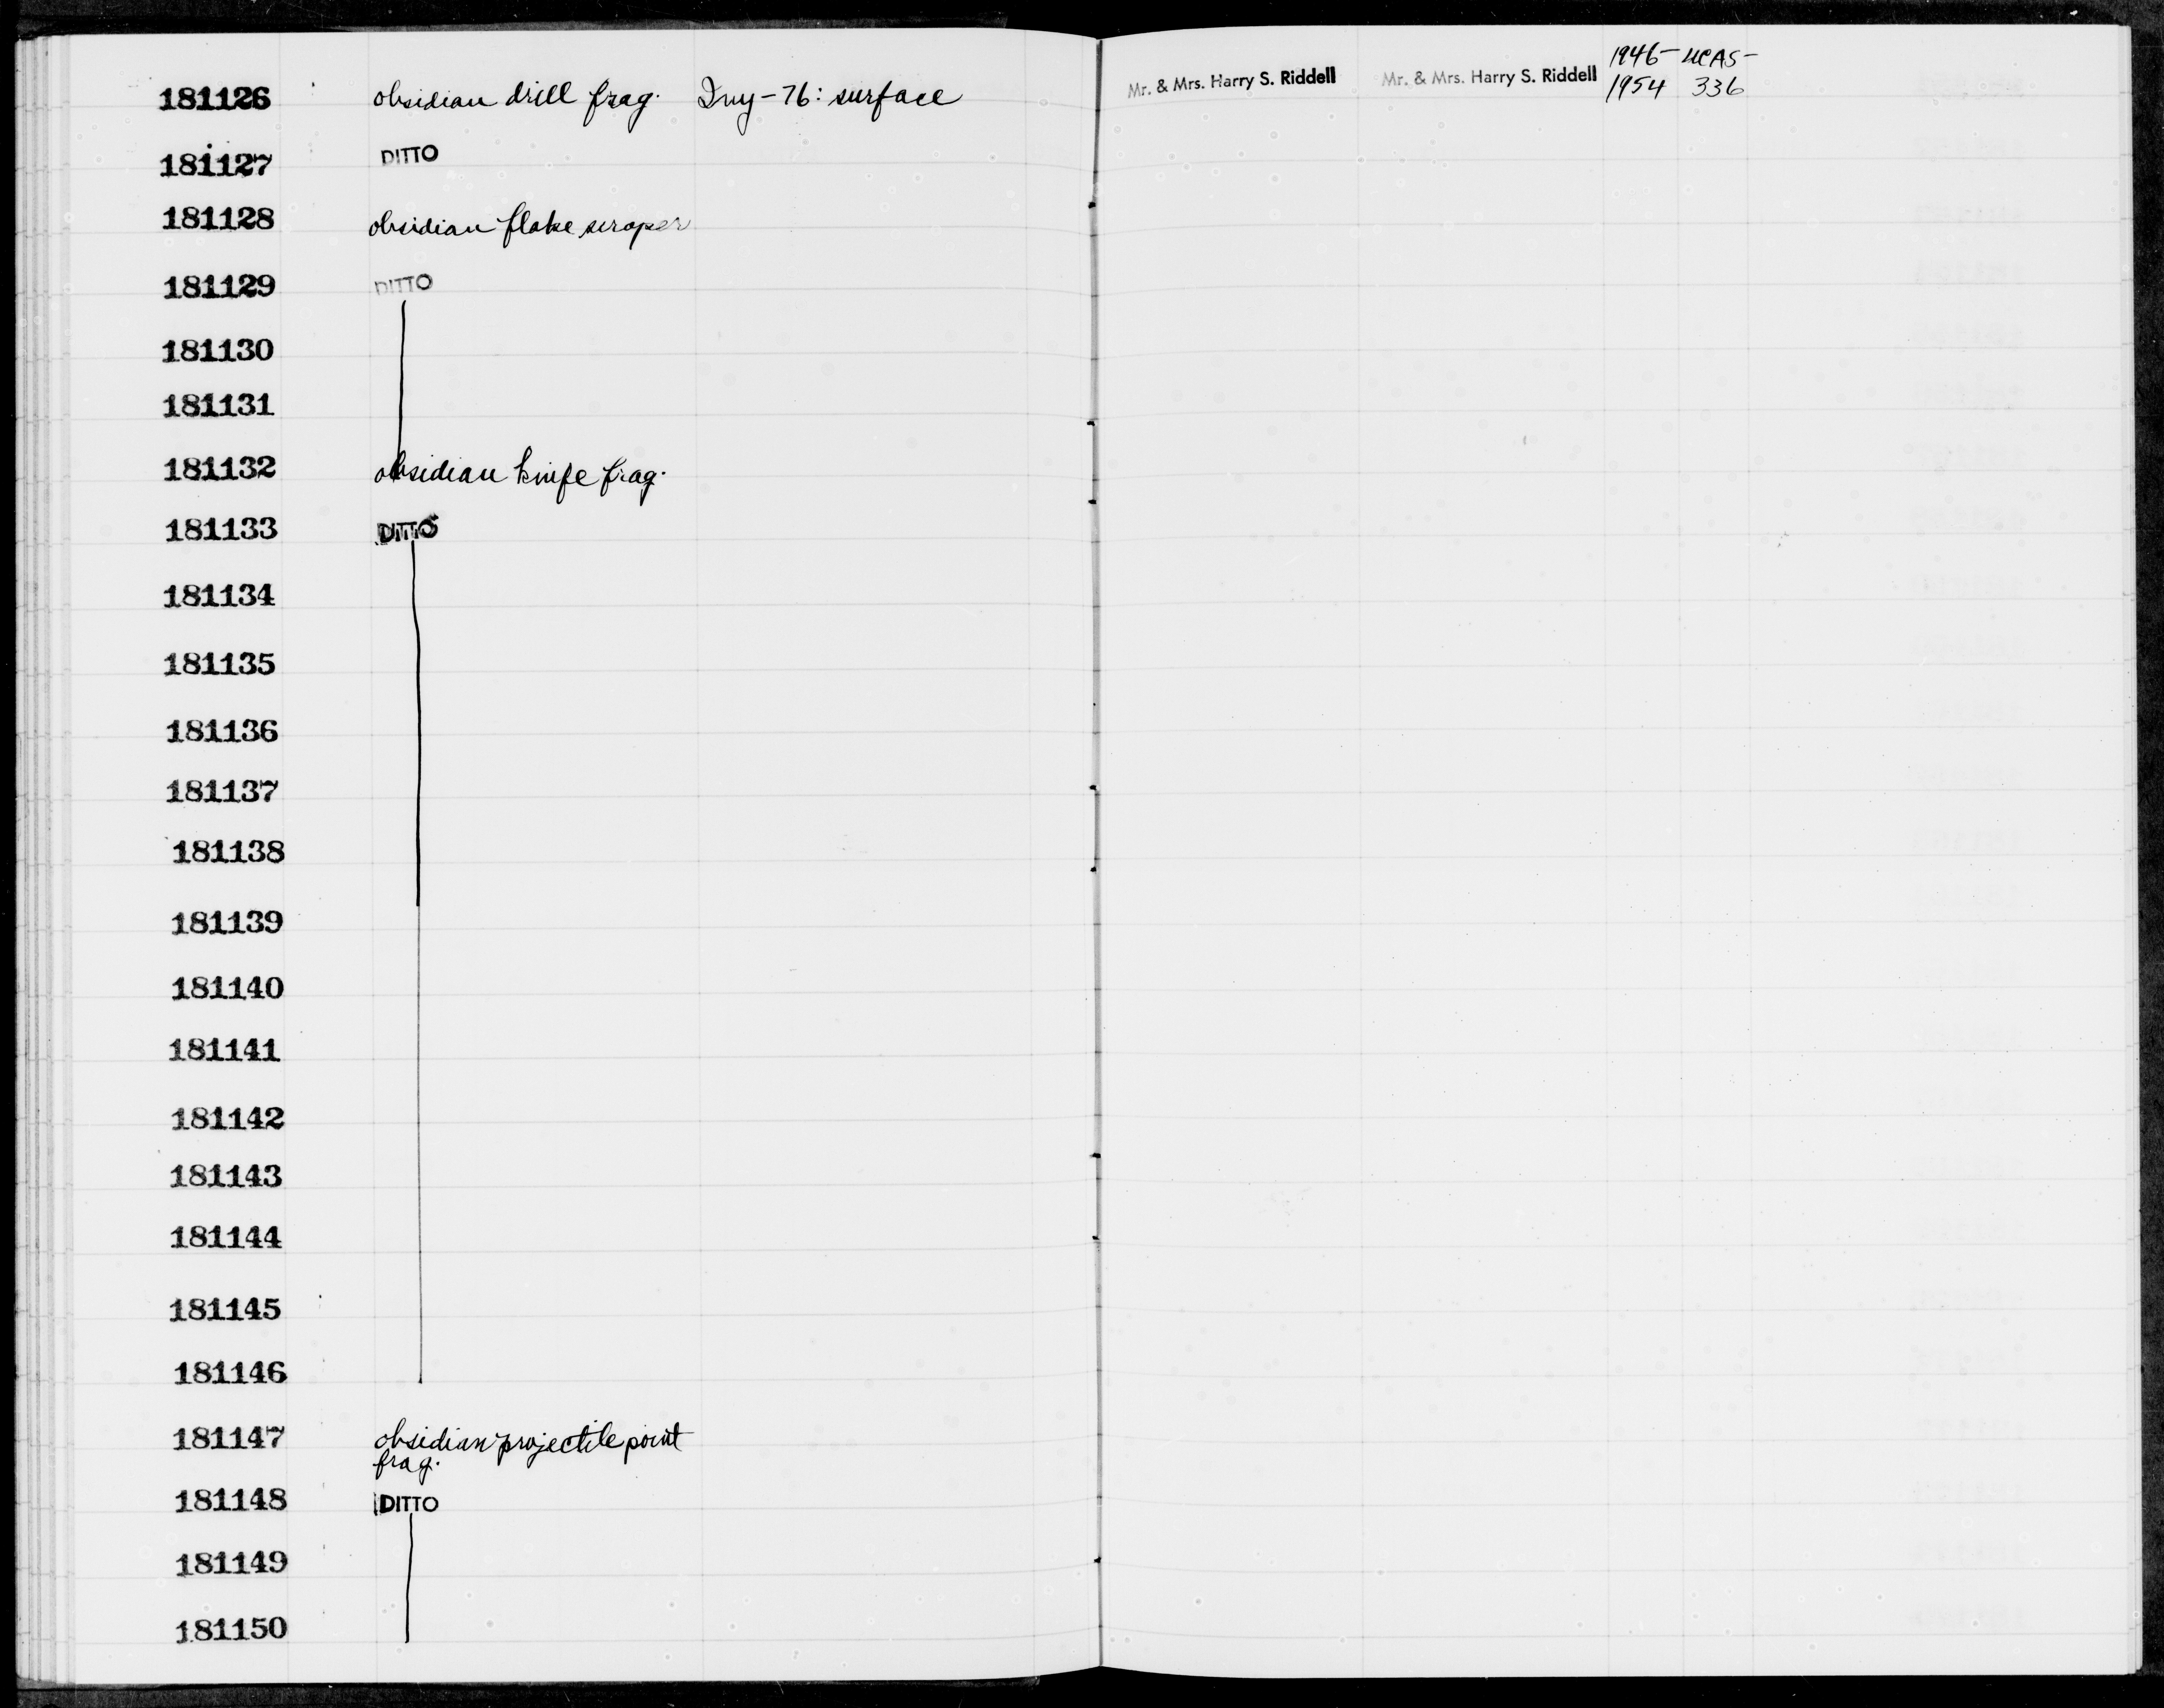 181126 obsidian drill frag. Iny-76: surface Mr. & Mrs. Harry S. Riddell Mr. & Mrs. Harry S. Riddell 1946- UCAS-
1954 336
181127 DITTO
181128 obsidian flake scraper
181129 DITTO
181130
181131
181132 obsidian knife frag.
181133 DITTO
181134
181135
181136
181137
181138
181139
181140
181141
181142
181143
181144
181145
181146
181147 obsidian projectile point
frag.
181148 DITTO
181149
181150